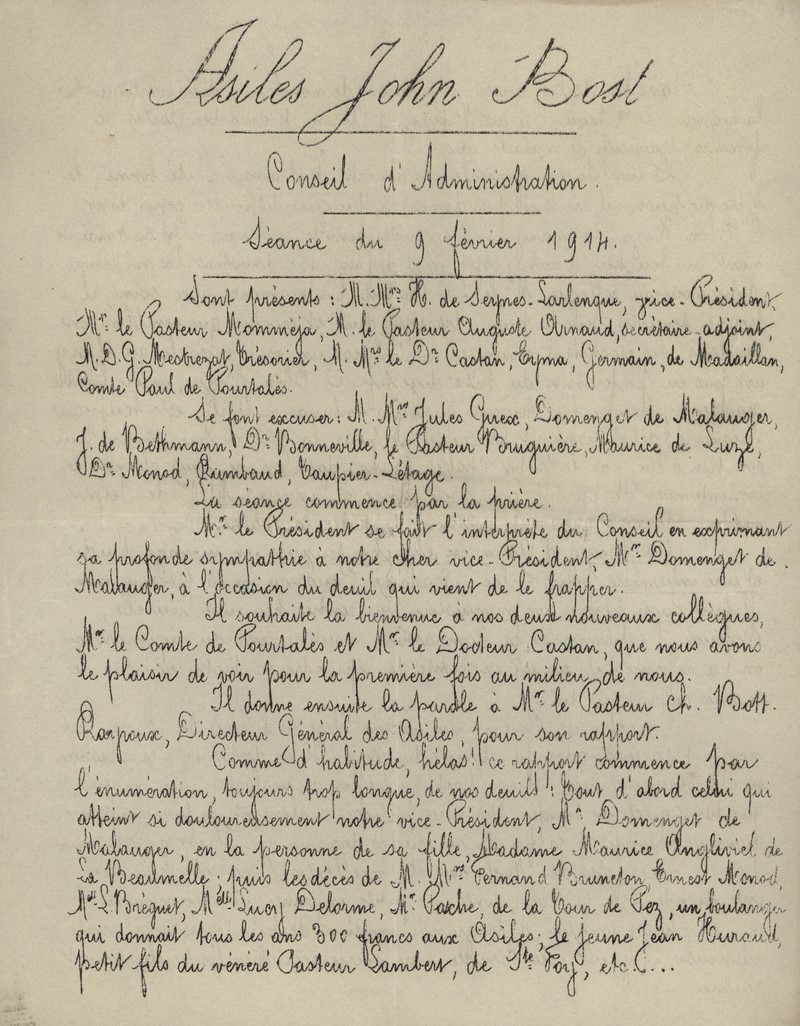 Asiles John Bost
Conseil d'Administration.
Séance du 9 février 1914.
Sont présents : M.Mrs H. de Serres-Larlenque, vice-Président,
Mr le Pasteur Momméja, M. le Pasteur Auguste Arnaud, secrétaire-adjoint,
M.D.G. Mestrezat, Trésorier, M. Mrs le Dr Castan, Eyma, Germain, de Madaillan,
Comte Paul de Pourtalès.
Se font excuser : M. Mrs Jules Guex, Domenget de Malauger,
J. de Bethmann, Dr Bonneville, le Pasteur Bruguière, Maurice de Luze,
Dr Monod, Rambaud, Taupier-Létage.
La séance commence par la prière.
Mr le Président se fait l'interprète du Conseil en exprimant
sa profonde sympathie à notre cher vice-Président, Mr Domenget de
Malauger, à l'occasion du deuil qui vient de le frapper.
Il souhaite la bienvenue à nos deux nouveaux collègues,
Mr le Comte de Pourtalès et Mr le Docteur Castan, que nous avons
le plaisir de voir pour la première fois au milieu de nous.
Il donne ensuite la parole à Mr le Pasteur Ch. Bost.
Directeur Général des Asiles, pour son rapport.
Comme d'habitude, hélas! ce rapport commence par
l'énumération, toujours trop longue, de nos deuils : Tout d'abord celui qui
atteint si douloureusement notre vice-Président, Mr Domenget de
Malauger, en la personne de sa fille, Madame Maurice Angliviel de
La Beaumelle ; puis les décès de M. Mrs Fernand Bruneton, Ernest Monod,
L. Breguet, Melle Lucy Delorme, Mr Pasche, de la Tour de Pez, un boulanger
qui donnait tous les ans 300 francs aux Asiles ; le jeune Jean Huraud,
petit fils du vénéré Pasteur Lambert, de Ste Foy, etc...